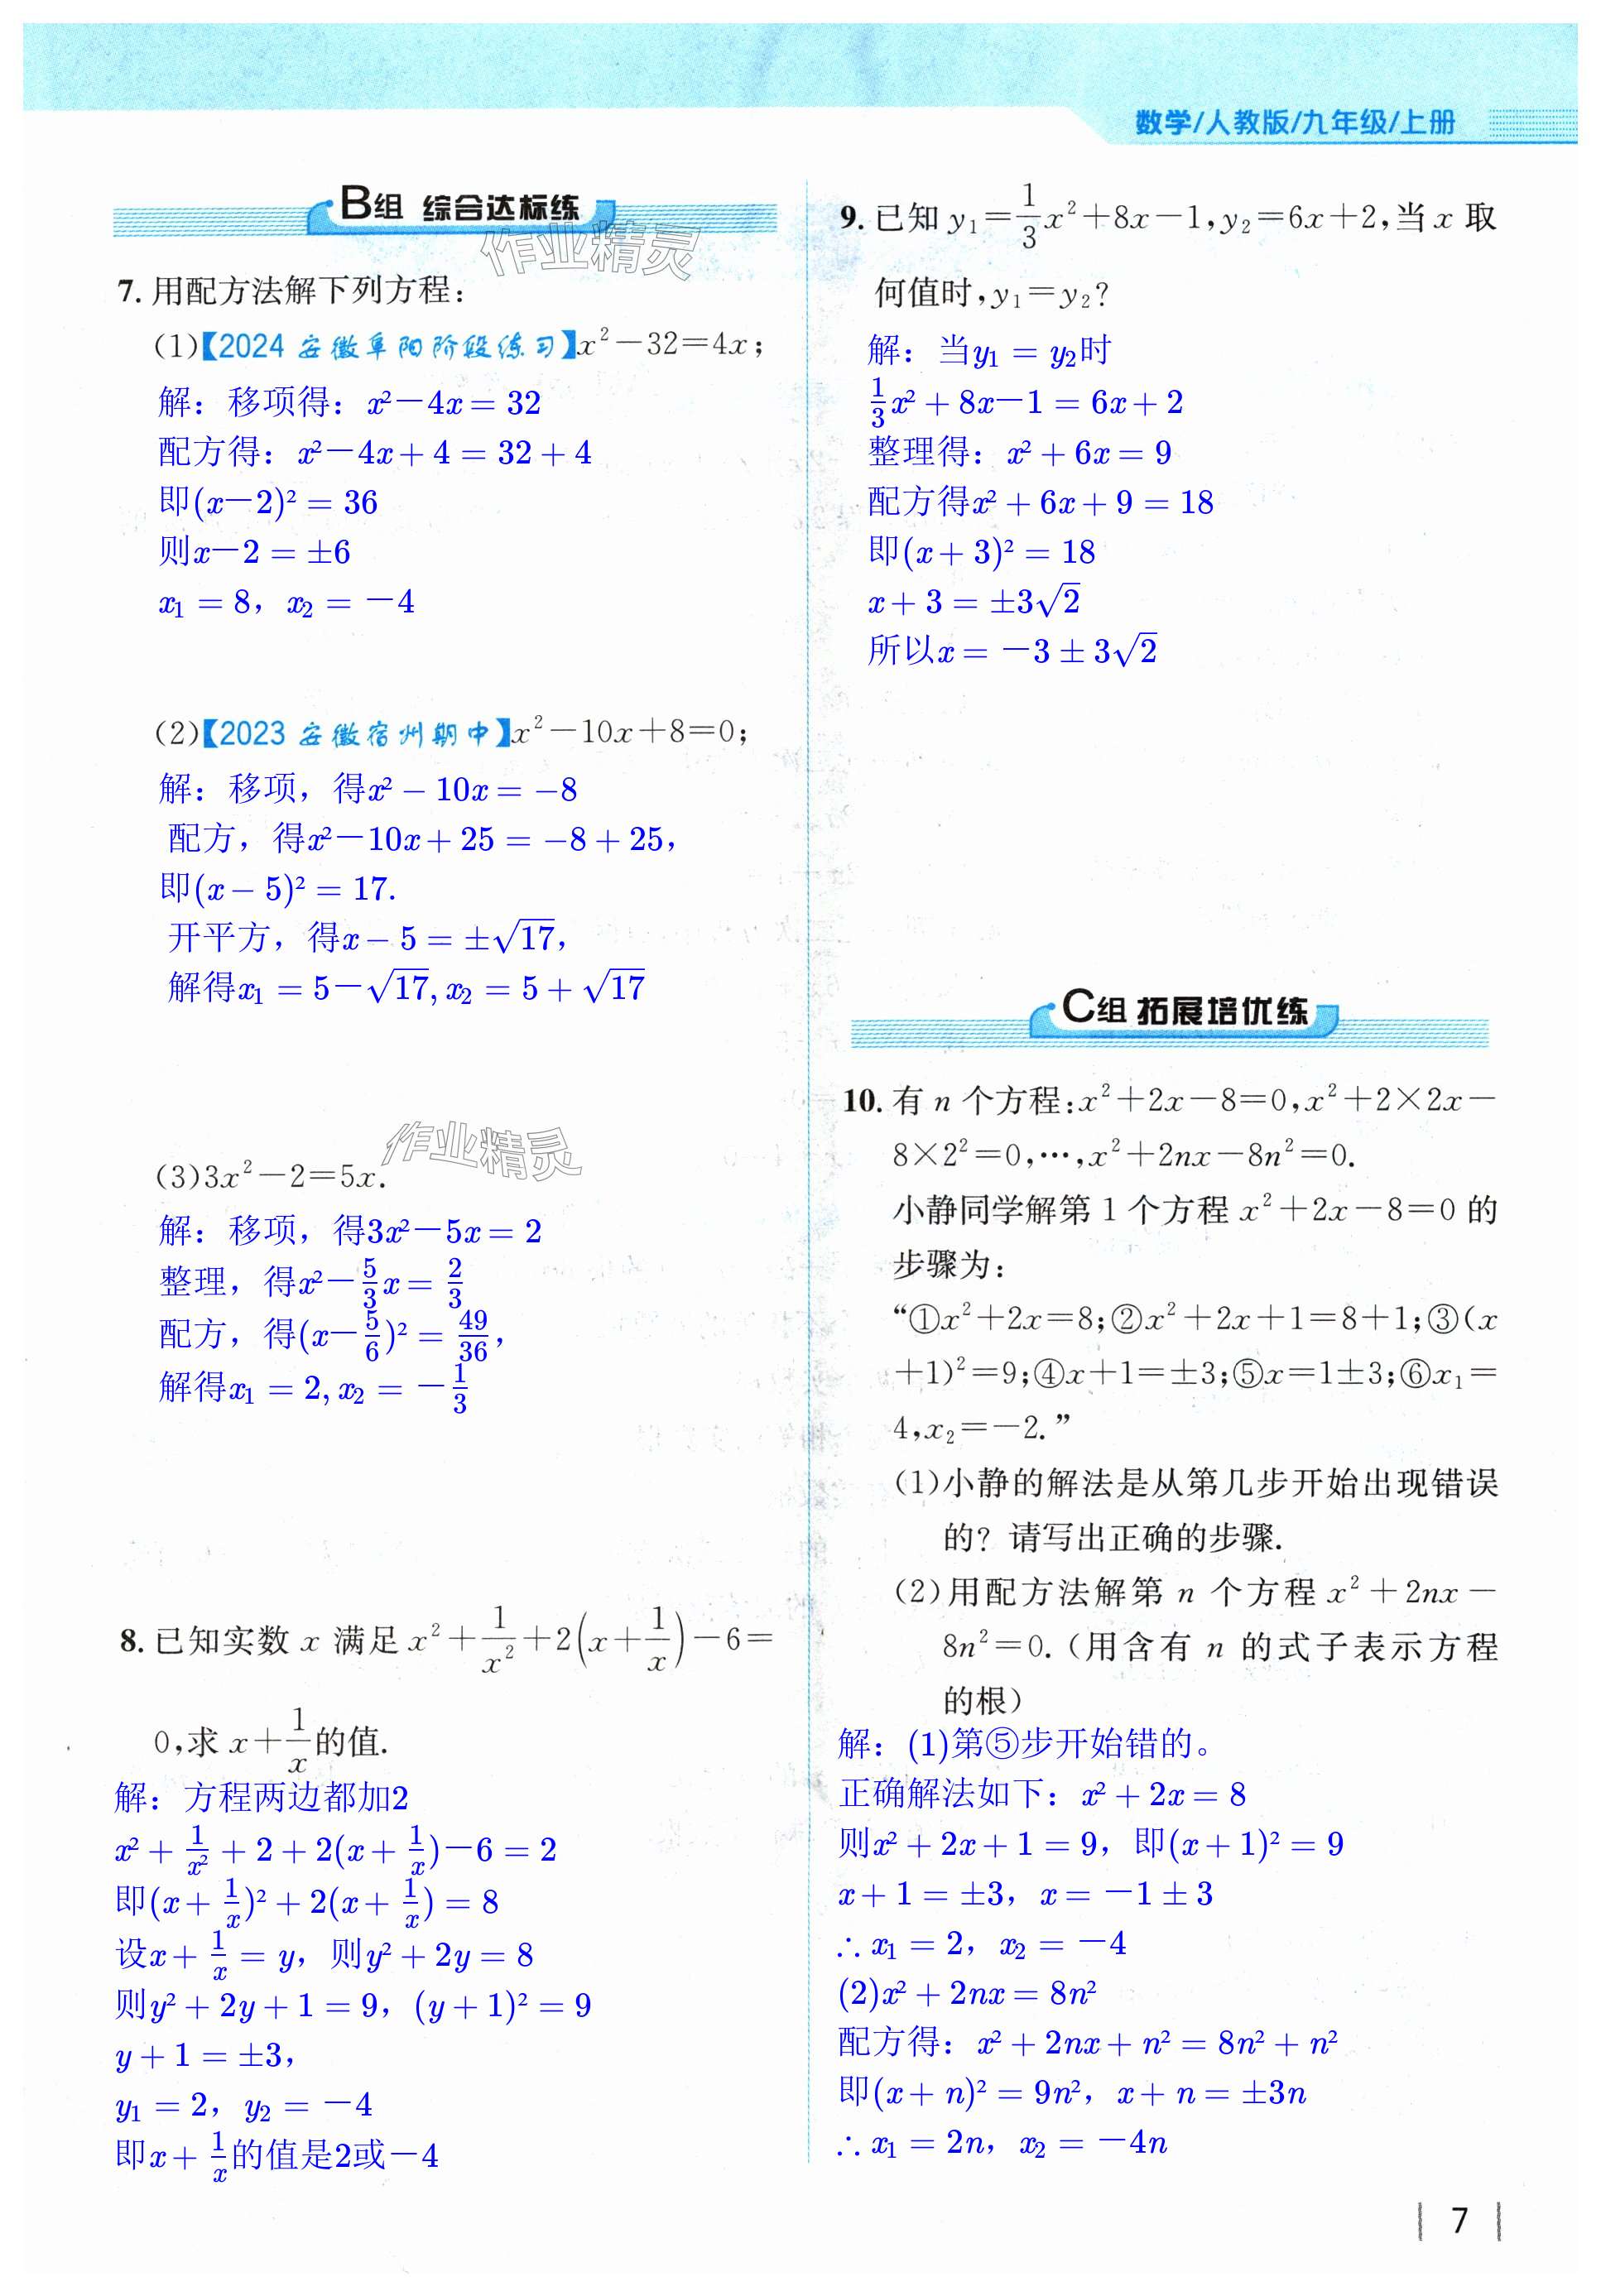 数学/人教版/九年级/上册
B组 综合达标练
作业精灵
7. 用配方法解下列方程:
(1)【2024 安徽阜阳阶段练习】x²-32=4x;
解：移项得：x²-4x=32
配方得：x²-4x+4=32+4
即(x-2)²=36
则x-2=±6
x₁=8，x₂=-4
(2)【2023 安徽宿州期中】x²-10x+8=0;
解：移项，得x²-10x=-8
配方，得x²-10x+25=-8+25，
即(x-5)²=17.
开平方，得x-5=±√17，
解得x₁=5-√17, x₂=5+√17
作业精灵
(3)3x²-2=5x.
解：移项，得3x²-5x=2
整理，得x²-5/3x=2/3
配方，得(x-5/6)²=49/36，
解得x₁=2, x₂=-1/3
8. 已知实数 x 满足 x²+1/x²+2(x+1/x)-6=
0,求 x+1/x的值.
解：方程两边都加2
x²+1/x²+2+2(x+1/x)-6=2
即(x+1/x)²+2(x+1/x)=8
设x+1/x=y，则y²+2y=8
则y²+2y+1=9，(y+1)²=9
y+1=±3，
y₁=2，y₂=-4
即x+1/x的值是2或-4
9. 已知 y₁=1/3x²+8x-1,y₂=6x+2,当 x 取
何值时,y₁=y₂?
解：当y₁=y₂时
1/3x²+8x-1=6x+2
整理得：x²+6x=9
配方得x²+6x+9=18
即(x+3)²=18
x+3=±3√2
所以x=-3±3√2
C组 拓展培优练
10. 有 n 个方程:x²+2x-8=0,x²+2×2x-
8×2²=0,…,x²+2nx-8n²=0.
小静同学解第 1 个方程 x²+2x-8=0 的
步骤为:
“①x²+2x=8;②x²+2x+1=8+1;③(x
+1)²=9;④x+1=±3;⑤x=1±3;⑥x₁=
4,x₂=-2.”
(1)小静的解法是从第几步开始出现错误
的? 请写出正确的步骤.
(2)用配方法解第 n 个方程 x²+2nx-
8n²=0.(用含有 n 的式子表示方程
的根)
解：(1)第⑤步开始错的。
正确解法如下：x²+2x=8
则x²+2x+1=9，即(x+1)²=9
x+1=±3，x=-1±3
∴x₁=2，x₂=-4
(2)x²+2nx=8n²
配方得：x²+2nx+n²=8n²+n²
即(x+n)²=9n²，x+n=±3n
∴x₁=2n，x₂=-4n
7